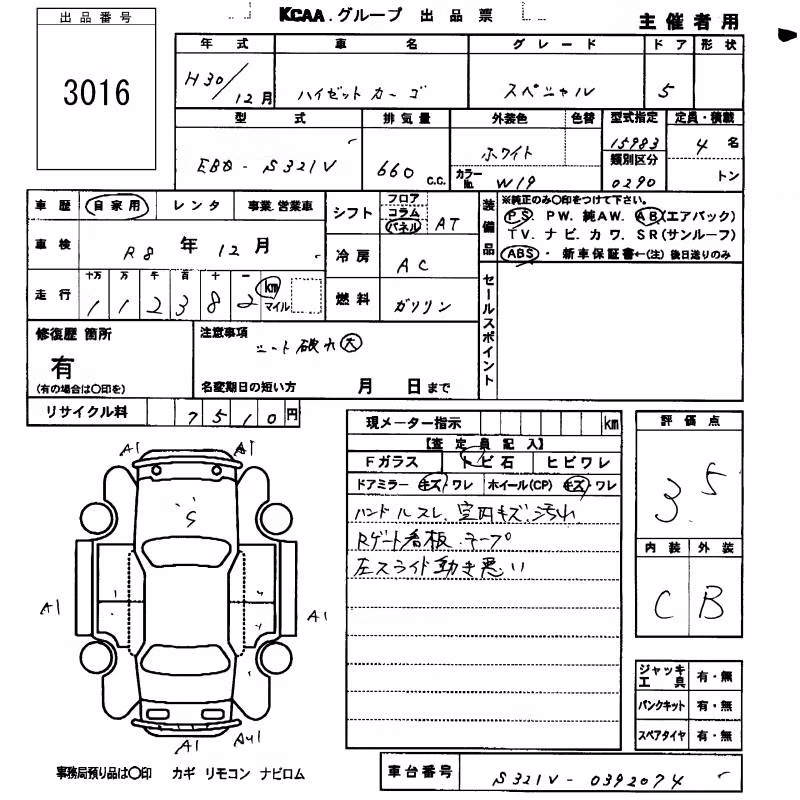 KCAA.グループ 出品票
主催者用
出品番号
3016
年式 車名 グレード ドア 形状
H30/12月 ハイゼットカーゴ スペシャル 5
型式 排気量 外装色 色替 型式指定 定員・積載
EBD-S321V 660 C.C. ホワイト 15983 4名
カラーNo. W19 類別区分 0290 トン
車歴 自家用 レンタ 事業.営業車
シフト フロア コラム パネル AT
装備品 ※純正のみ〇印をつけて下さい。
PS. PW. 純AW. AB(エアバック)
TV. ナビ. カワ. SR(サンルーフ)
ABS・新車保証書←(注)後日送りのみ
車検 R8年12月
冷房 AC
走行 十万 万 千 百 十 一 km マイル
112382
燃料 ガソリン
セールスポイント
修復歴 箇所
有
(有の場合は〇印を)
注意事項
シート破れ大
名変期日の短い方 月 日まで
リサイクル料 7510円
現メーター指示 km
【査定員記入】
Fガラス トビ石 ヒビワレ
ドアミラー キズ・ワレ ホイール(CP) キズ・ワレ
ハンドルスレ.室内キズ.汚れ
Rゲート看板.テープ
左スライド動き悪い
評価点
3.5
内装 外装
C B
A1 A1
S
A1 A1
A1 AU1
ジャッキ工具 有・無
パンクキット 有・無
スペアタイヤ 有・無
事務局預り品は〇印 カギ リモコン ナビロム
車台番号 S321V-0392074